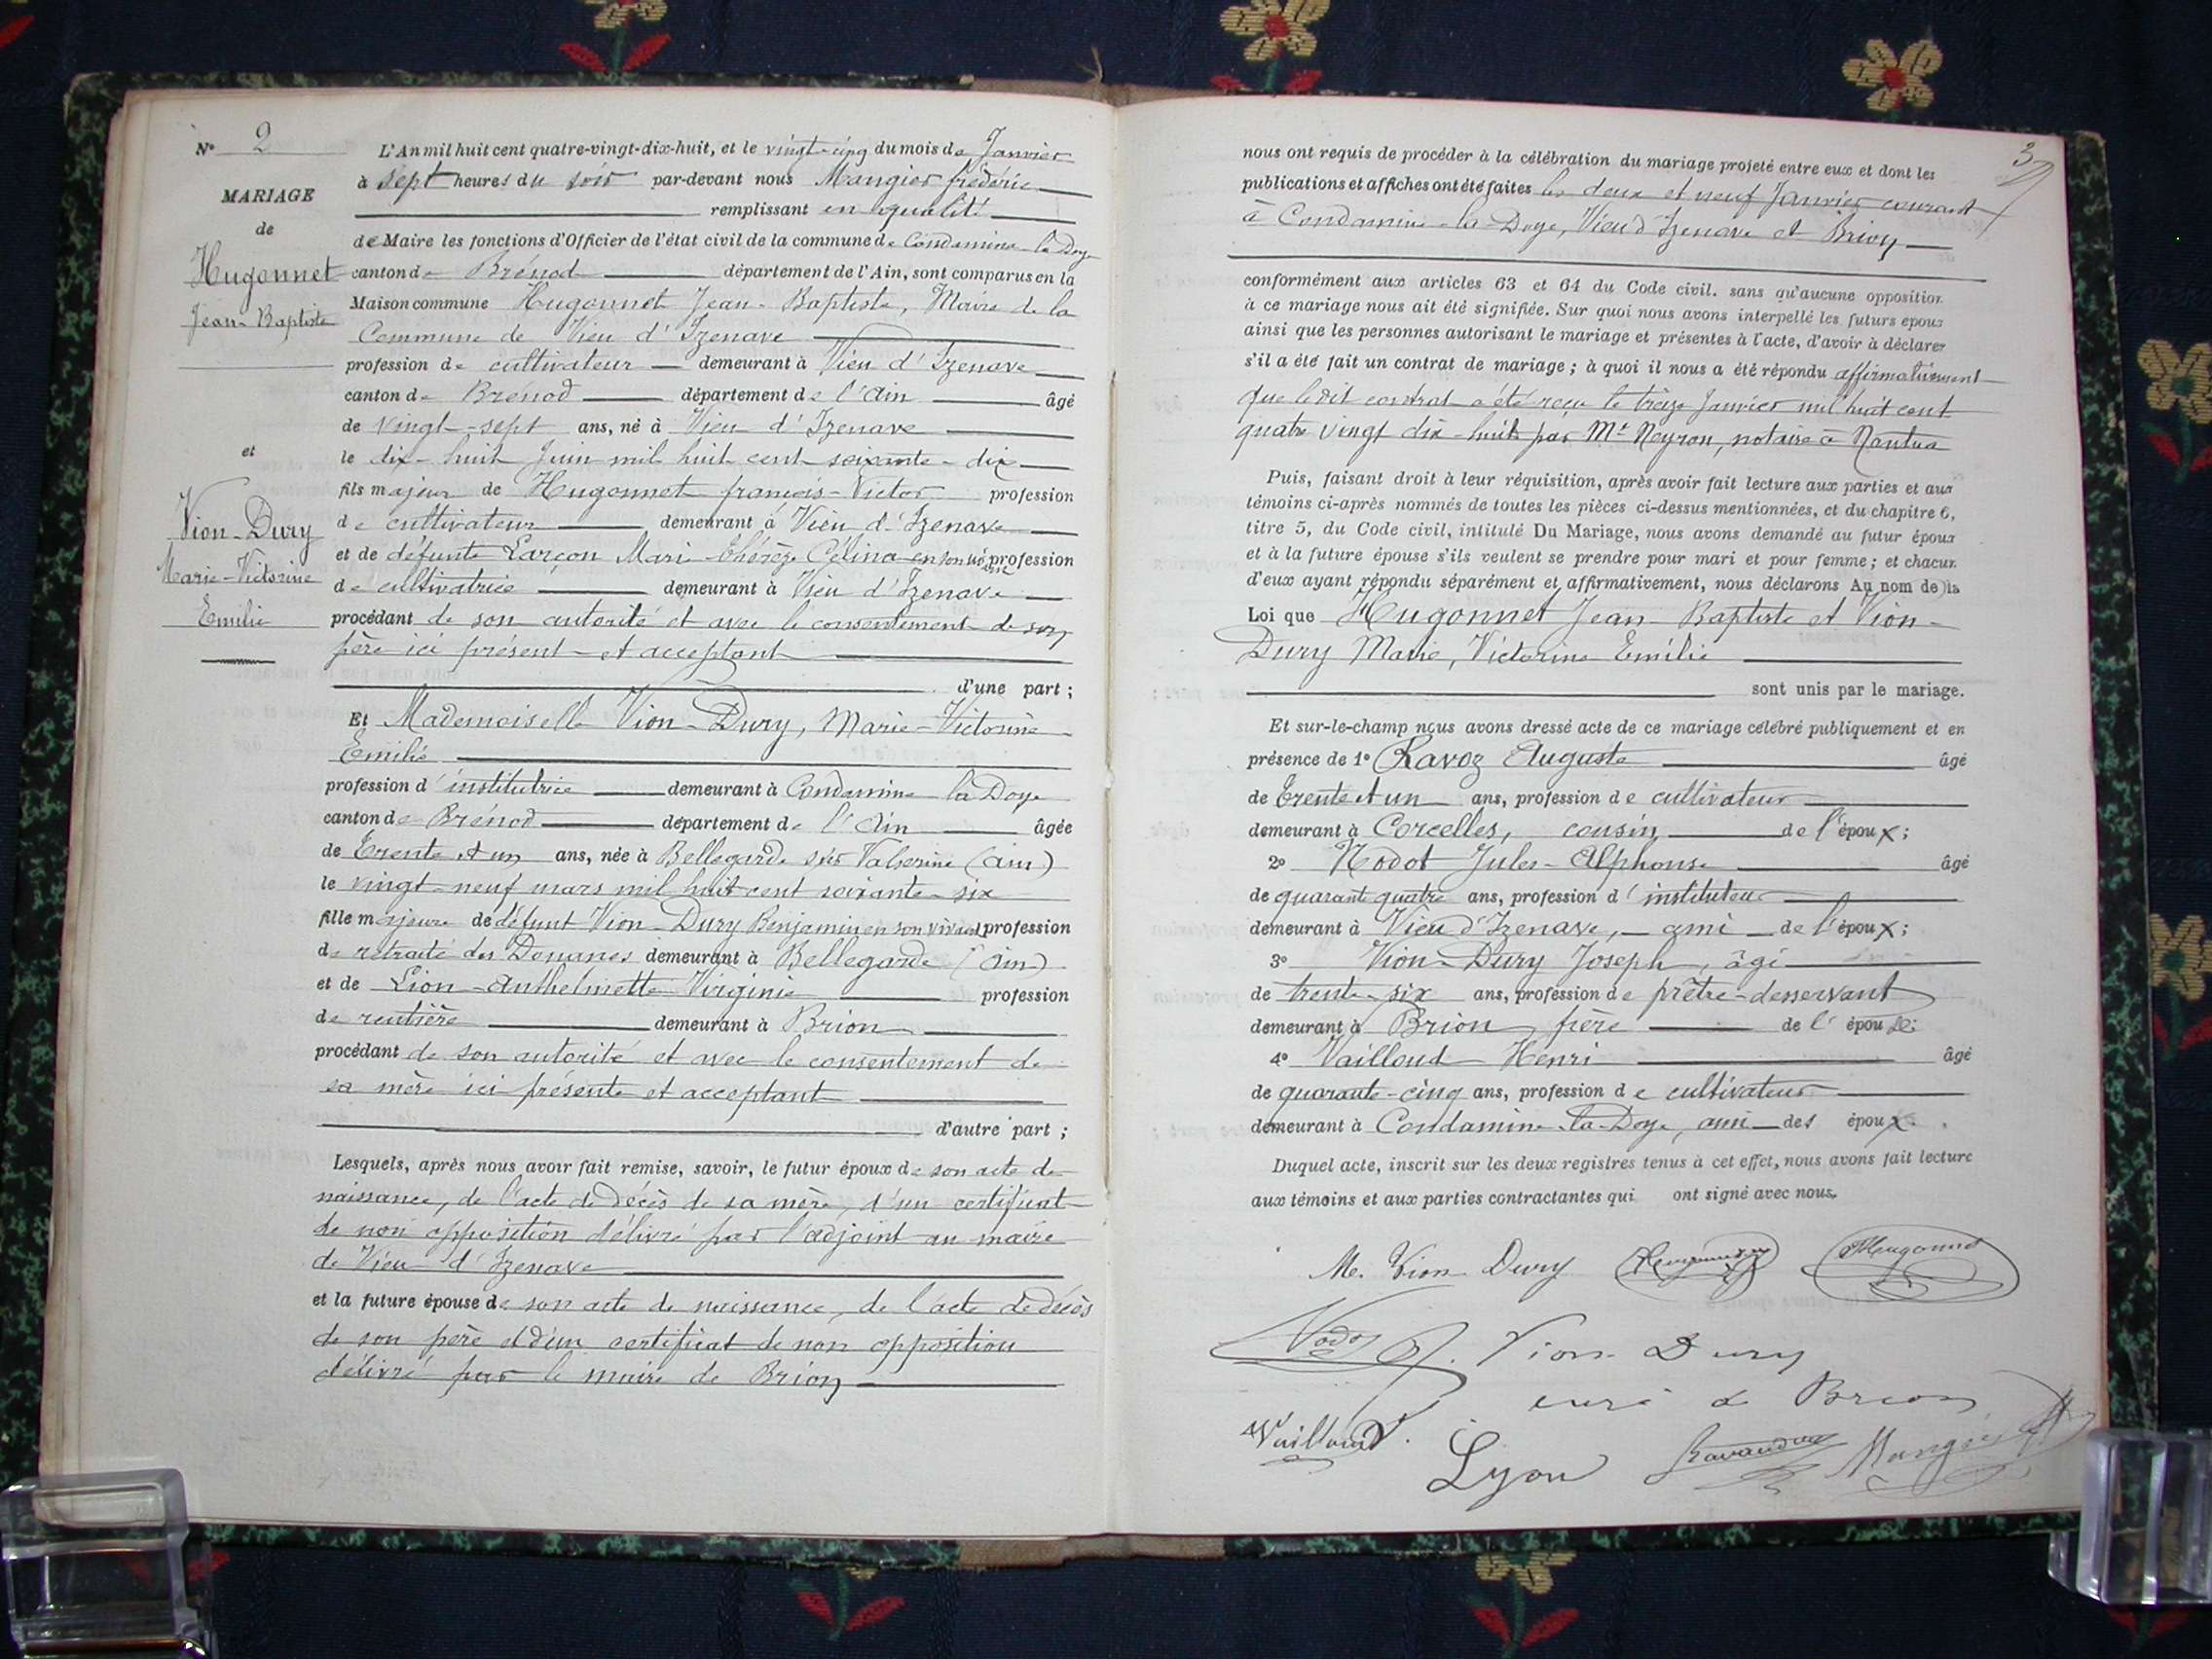 N° 2
MARIAGE
de
Hugonnet
Jean-Baptiste
et
Vion-Dury
Marie-Victorine
Emilie
L'An mil huit cent quatre-vingt-dix-huit, et le vingt-cinq du mois de Janvier
à sept heures du soir par-devant nous Maugier frédéric
remplissant en qualité
de Maire les fonctions d'Officier de l'état civil de la commune de Condamine la Doye
canton de Brénod département de l'Ain, sont comparus en la
Maison commune Hugonnet Jean-Baptiste, Maire de la
Commune de Vieu d'Izenave
profession de cultivateur demeurant à Vieu d'Izenave
canton de Brénod département de l'Ain âgé
de vingt-sept ans, né à Vieu d'Izenave
le dix-huit Juin mil huit cent soixante-dix
fils majeur de Hugonnet françois-Victor profession
de cultivateur demeurant à Vieu d'Izenave
et de défunte Larçon Mari-Thérèze Célina en son profession
de cultivatrice demeurant à Vieu d'Izenave
procédant de son autorité et avec le consentement de son
père ici présent et acceptant
d'une part ;
Et Mademoiselle Vion-Dury, Marie-Victorine
Emilie
profession d'institutrice demeurant à Condamine la Doye
canton de Brénod département de l'Ain âgée
de Trente et un ans, née à Bellegarde sur Valserine (Ain)
le vingt-neuf mars mil huit cent soixante-six
fille majeure de défunt Vion-Dury Benjamin en son vivant profession
de retraité des Douanes demeurant à Bellegarde (Ain)
et de Lion-Anthelmette Virginie profession
de rentière demeurant à Brion
procédant de son autorité et avec le consentement de
sa mère ici présente et acceptant
d'autre part ;
Lesquels, après nous avoir fait remise, savoir, le futur époux de son acte de
naissance, de l'acte de décès de sa mère, d'un certificat
de non opposition délivré par l'adjoint au maire
de Vieu d'Izenave
et la future épouse de son acte de naissance, de l'acte de décès
de son père et d'un certificat de non opposition
délivré par le maire de Brion
3
nous ont requis de procéder à la célébration du mariage projeté entre eux et dont les
publications et affiches ont été faites les deux et neuf Janvier courant
à Condamine-la-Doye, Vieu d'Izenave et Brion
conformément aux articles 63 et 64 du Code civil. sans qu'aucune opposition
à ce mariage nous ait été signifiée. Sur quoi nous avons interpellé les futurs epoux
ainsi que les personnes autorisant le mariage et présentes à l'acte, d'avoir à déclarer
s'il a été fait un contrat de mariage ; à quoi il nous a été répondu affirmativement
que le dit contrat a été reçu le treize Janvier mil huit cent
quatre vingt dix-huit par Me Neyron, notaire à Nantua
Puis, faisant droit à leur réquisition, après avoir fait lecture aux parties et aux
témoins ci-après nommés de toutes les pièces ci-dessus mentionnées, et du chapitre 6,
titre 5, du Code civil, intitulé Du Mariage, nous avons demandé au futur époux
et à la future épouse s'ils veulent se prendre pour mari et pour femme ; et chacun
d'eux ayant répondu séparément et affirmativement, nous déclarons Au nom de la
Loi que Hugonnet Jean-Baptiste et Vion-
Dury Marie, Victorine Emilie
sont unis par le mariage.
Et sur-le-champ nous avons dressé acte de ce mariage célébré publiquement et en
présence de 1° Ravoz Auguste âgé
de Trente et un ans, profession de cultivateur
demeurant à Corcelles, cousin de l'époux ;
2° Nodot Jules-Alphonse âgé
de quarant quatre ans, profession d'instituteur
demeurant à Vieu d'Izenave, ami de l'époux ;
3° Vion-Dury Joseph, âgé
de trente-six ans, profession de prêtre-desservant
demeurant à Brion frère de l'épouse ;
4° Vailloud Henri âgé
de quarante-cinq ans, profession de cultivateur
demeurant à Condamine-la-Doye, ami des époux.
Duquel acte, inscrit sur les deux registres tenus à cet effet, nous avons fait lecture
aux témoins et aux parties contractantes qui ont signé avec nous.
M. Vion Dury Hugonnet
Nodot J. Vion-Dury
curé de Brion
Vailloud
Lyon Maugier